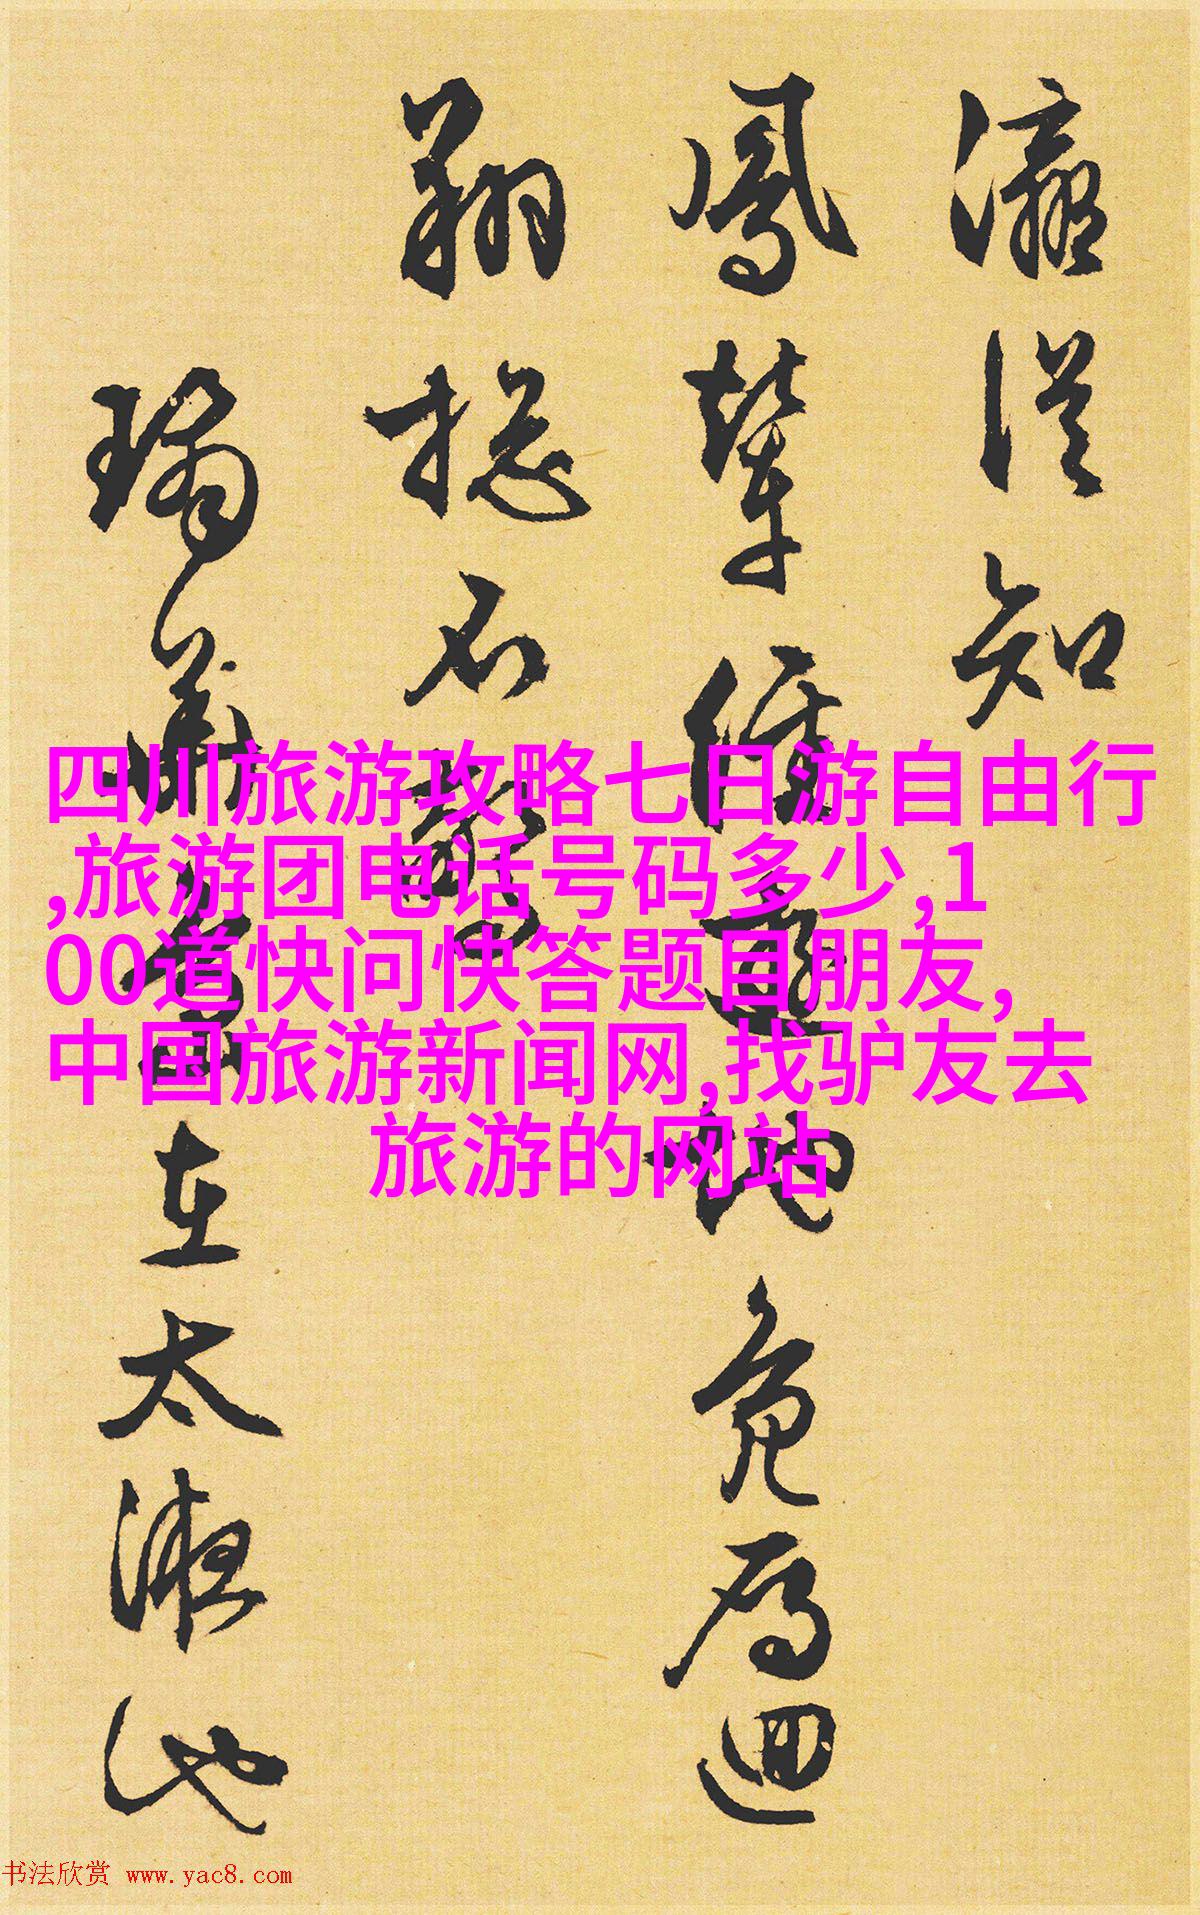 瀛從知
鳳輦經遊地鳧雁迴
翔捴不驚
瑞在太液池
四川旅游攻略七日游自由行
,旅游团电话号码多少,1
00道快问快答题目朋友,
中国旅游新闻网,找驴友去
旅游的网站
书法欣赏 www.yac8.com